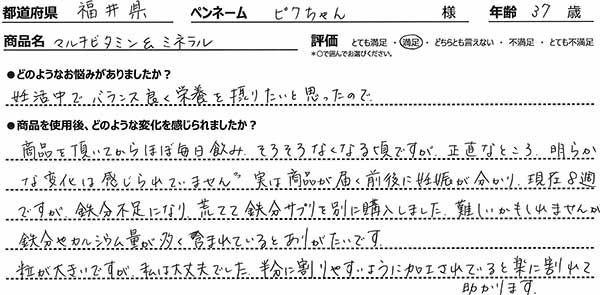 都道府県 福井県 ペンネーム ピクちゃん 様 年齢 37 歳
商品名 マルチビタミン& ミネラル 評価 とても満足 ・ 満足 ・ どちらとも言えない ・ 不満足 ・ とても不満足
*○で囲んでお選びください。
●どのようなお悩みがありましたか?
妊活中で バランス良く栄養を摂りたいと思ったので
●商品を使用後、どのような変化を感じられましたか?
商品を頂いてからほぼ毎日飲み、そろそろなくなる頃ですが、正直なところ、明らか
な変化は感じられていません〃 実は商品が届く前後に妊娠が分かり、現在8週
ですが、鉄分不足になり、荒てて鉄分サプリを別に購入しました、難しいかもしれませんが
鉄分やカルシウム量が多く含まれているとありがたいです
粒が大きいですが、私は大丈夫でした、半分に割りやすいように加工されていると楽に割れて
助かります。